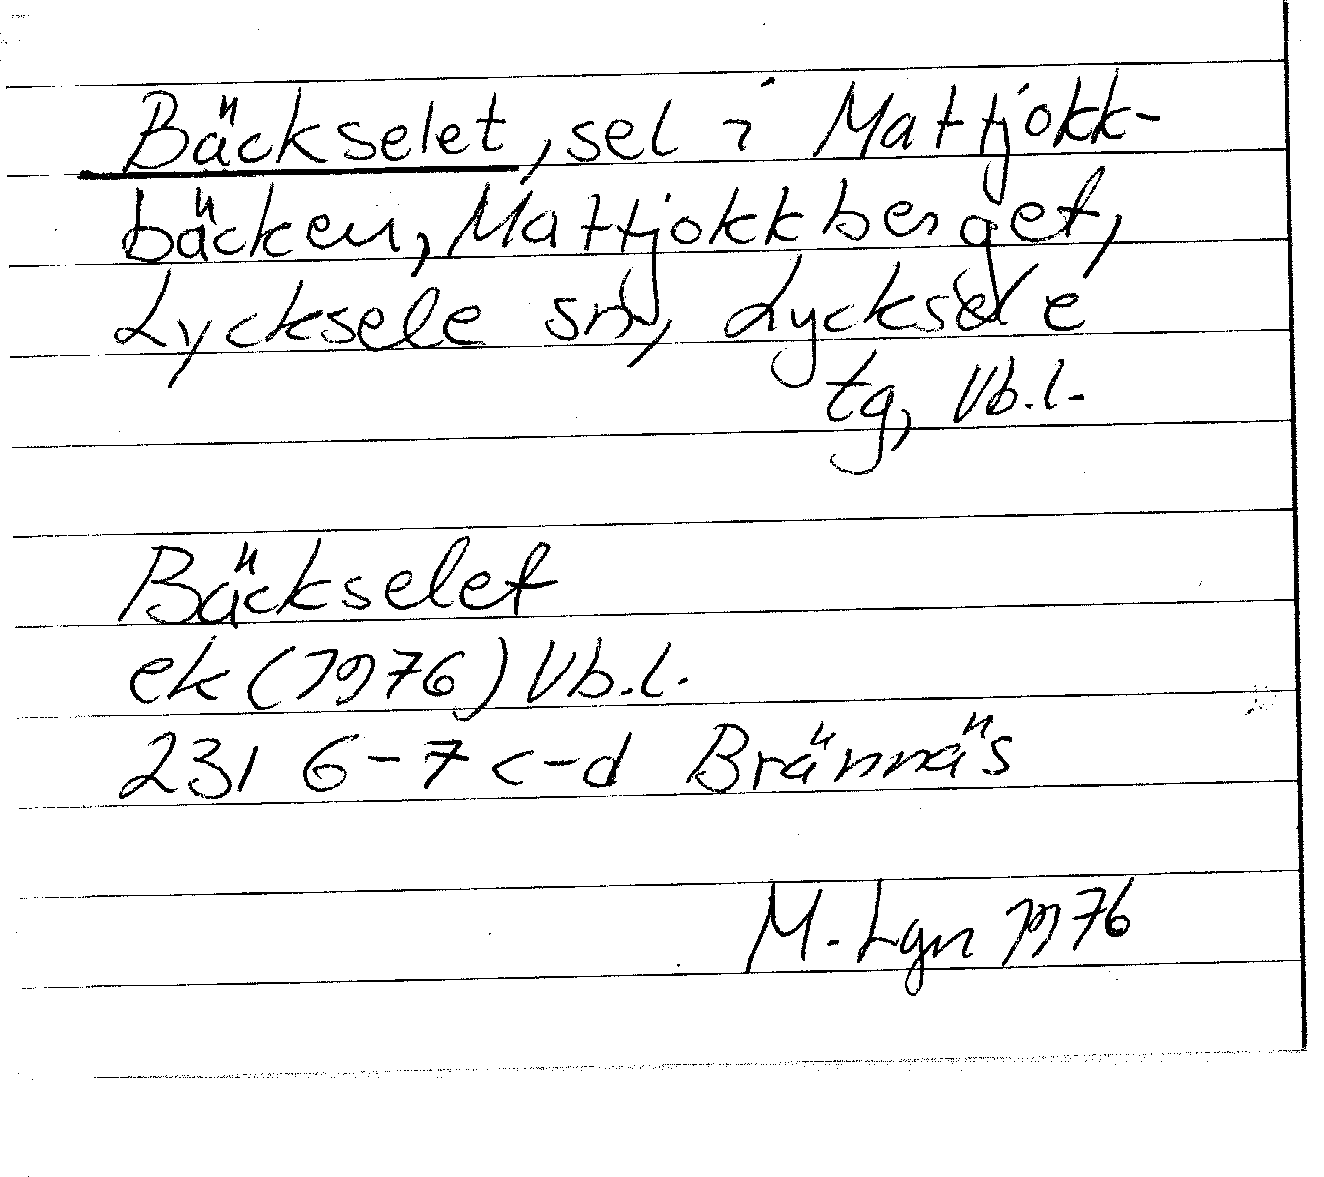 Bäckselet, sel i Mattjokk-
bäcken, Mattjokkberget,
Lycksele sn, Lycksele
tg, Vb.l.
Bäckselet
ek (1976) Vb.l.
231 6-7 c-d Brännäs
M. Lgn 1976